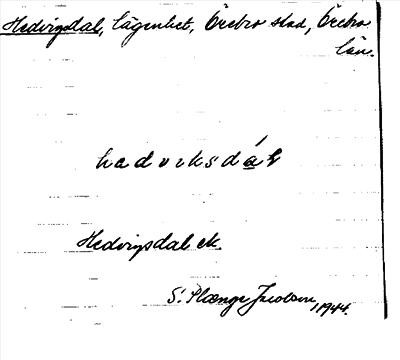 Hedvigsdal, lägenhet, Örebro stad, Örebro
län.
hedviksdál
Hedvigsdal ek.
S. Plænge Jacobson, 1944.